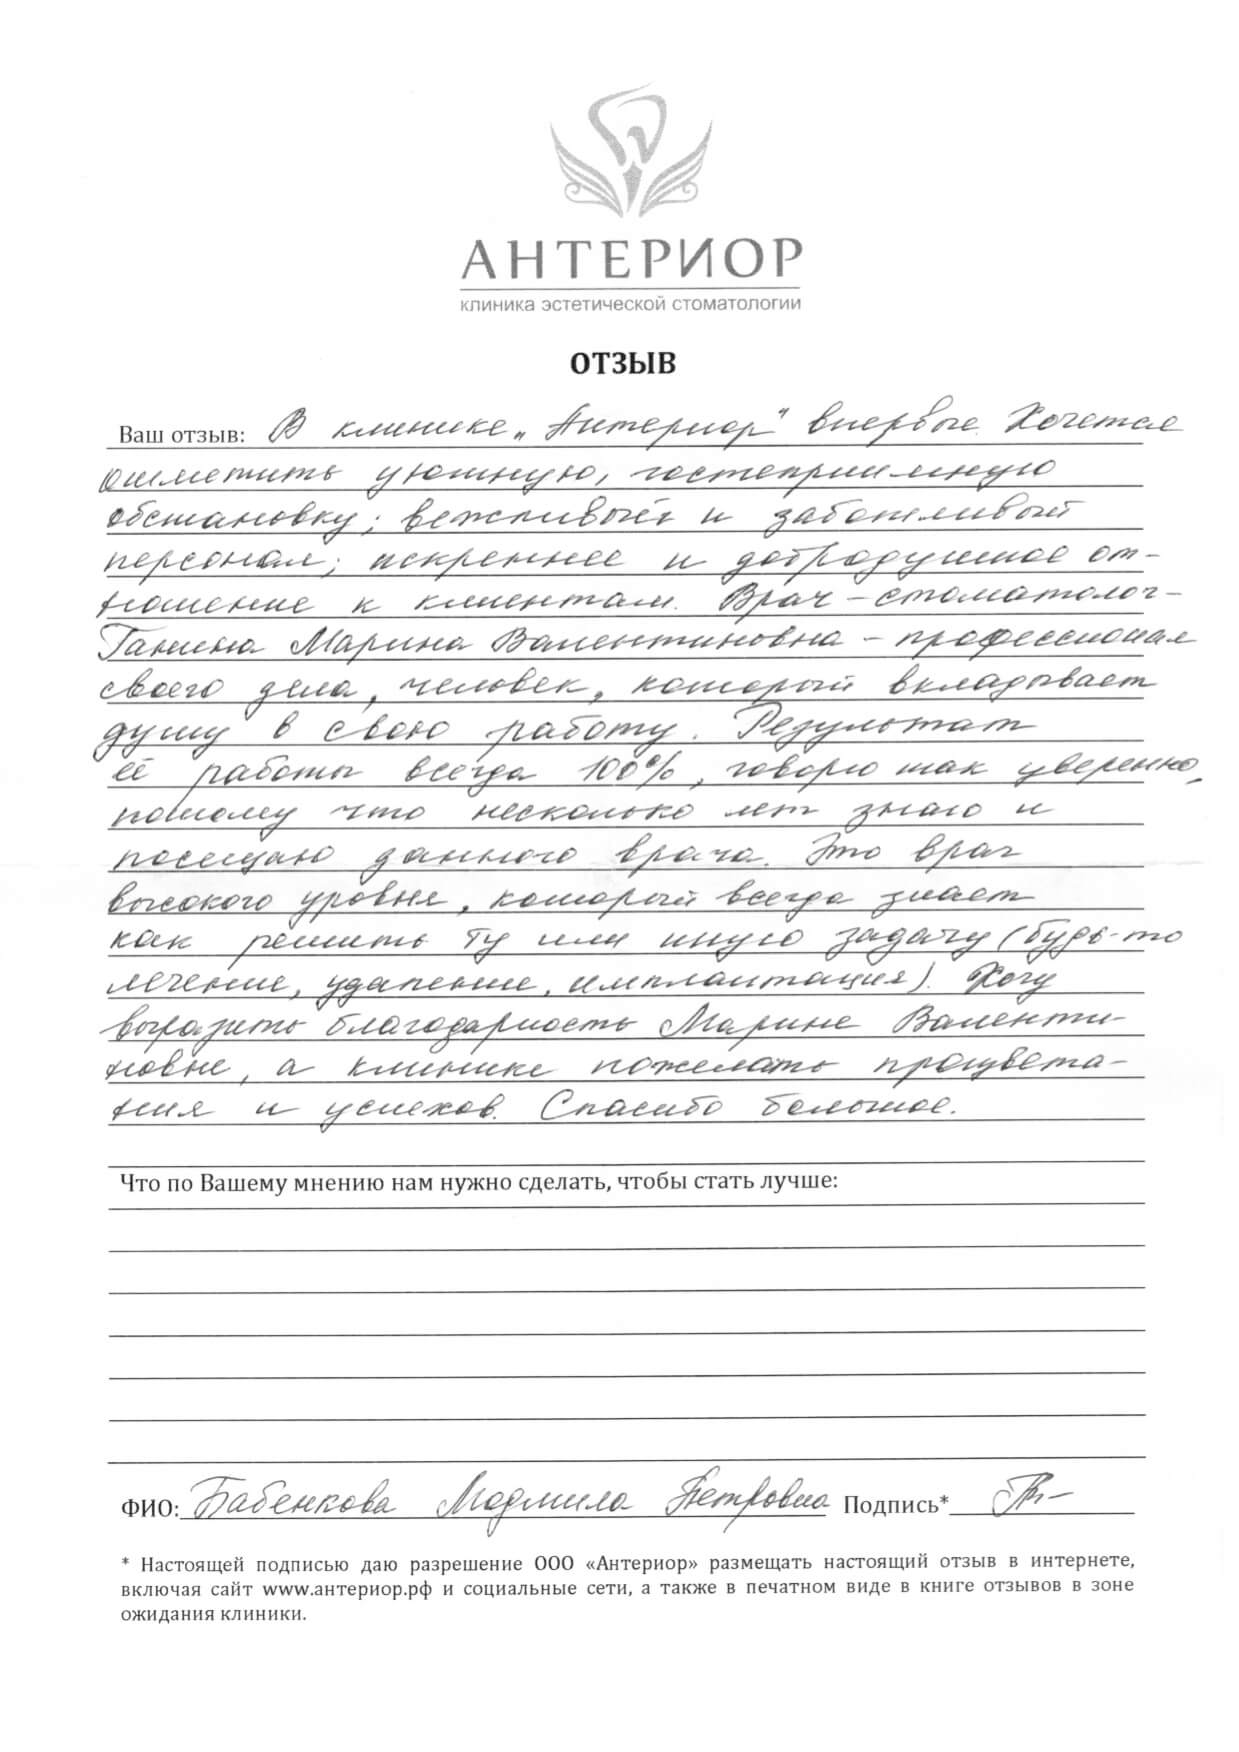 АНТЕРИОР
клиника эстетической стоматологии
ОТЗЫВ
Ваш отзыв: В клинике „Антериор" впервые. Хочется
отметить уютную, гостеприимную
обстановку; вежливый и заботливый
персонал; искреннее и добродушное от-
ношение к клиентам. Врач-стоматолог-
Ганина Марина Валентиновна - профессионал
своего дела, человек, который вкладывает
душу в свою работу. Результат
её работы всегда 100%, говорю так уверенно,
потому что несколько лет знаю и
посещаю данного врача. Это врач
высокого уровня, который всегда знает
как решить ту или иную задачу (будь-то
лечение, удаление, имплантация). Хочу
выразить благодарность Марине Валенти-
новне, а клинике пожелать процвета-
ния и успехов. Спасибо большое.
Что по Вашему мнению нам нужно сделать, чтобы стать лучше:
ФИО: Бабенкова Людмила Петровна Подпись*
* Настоящей подписью даю разрешение ООО «Антериор» размещать настоящий отзыв в интернете,
включая сайт www.антериор.рф и социальные сети, а также в печатном виде в книге отзывов в зоне
ожидания клиники.